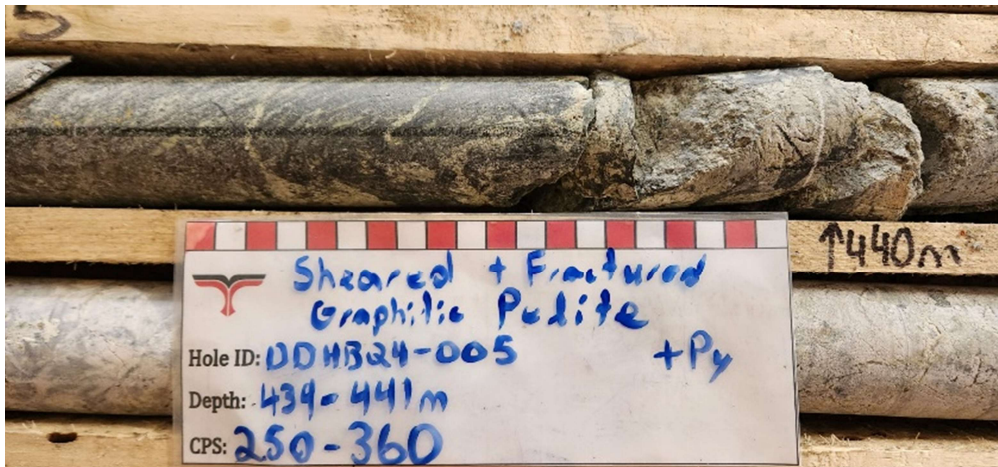 5
↑440m
Sheared + Fractured
Graphitic Pelite
Hole ID: DDHB24-005 +Py
Depth: 439-441m
CPS: 250-360